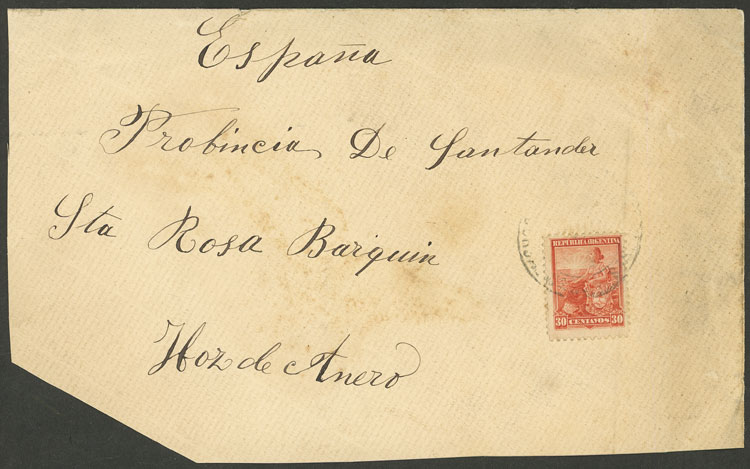 España
Probincia De Santander
Sta Rosa Barquin
REPÚBLICA ARGENTINA
30 CENTAVOS 30
Hoz de Anero